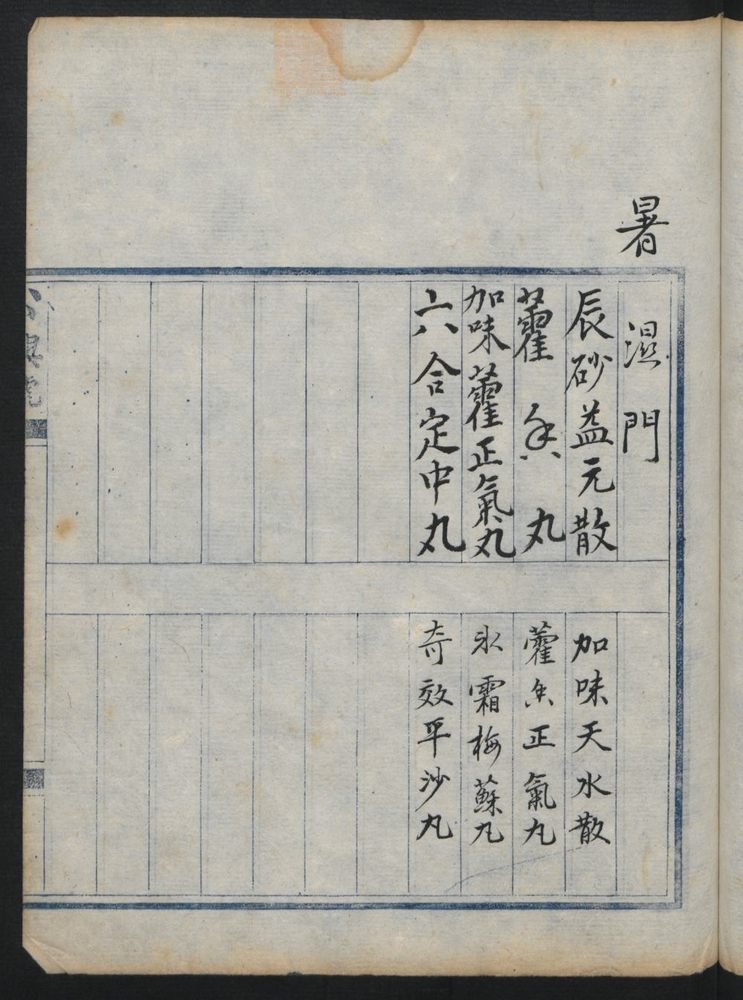 暑
濕門
辰砂益元散
加味天水散
藿香丸
藿香正氣丸
加味藿正氣丸
氷霜梅蘇丸
六合定中丸
奇效平沙丸